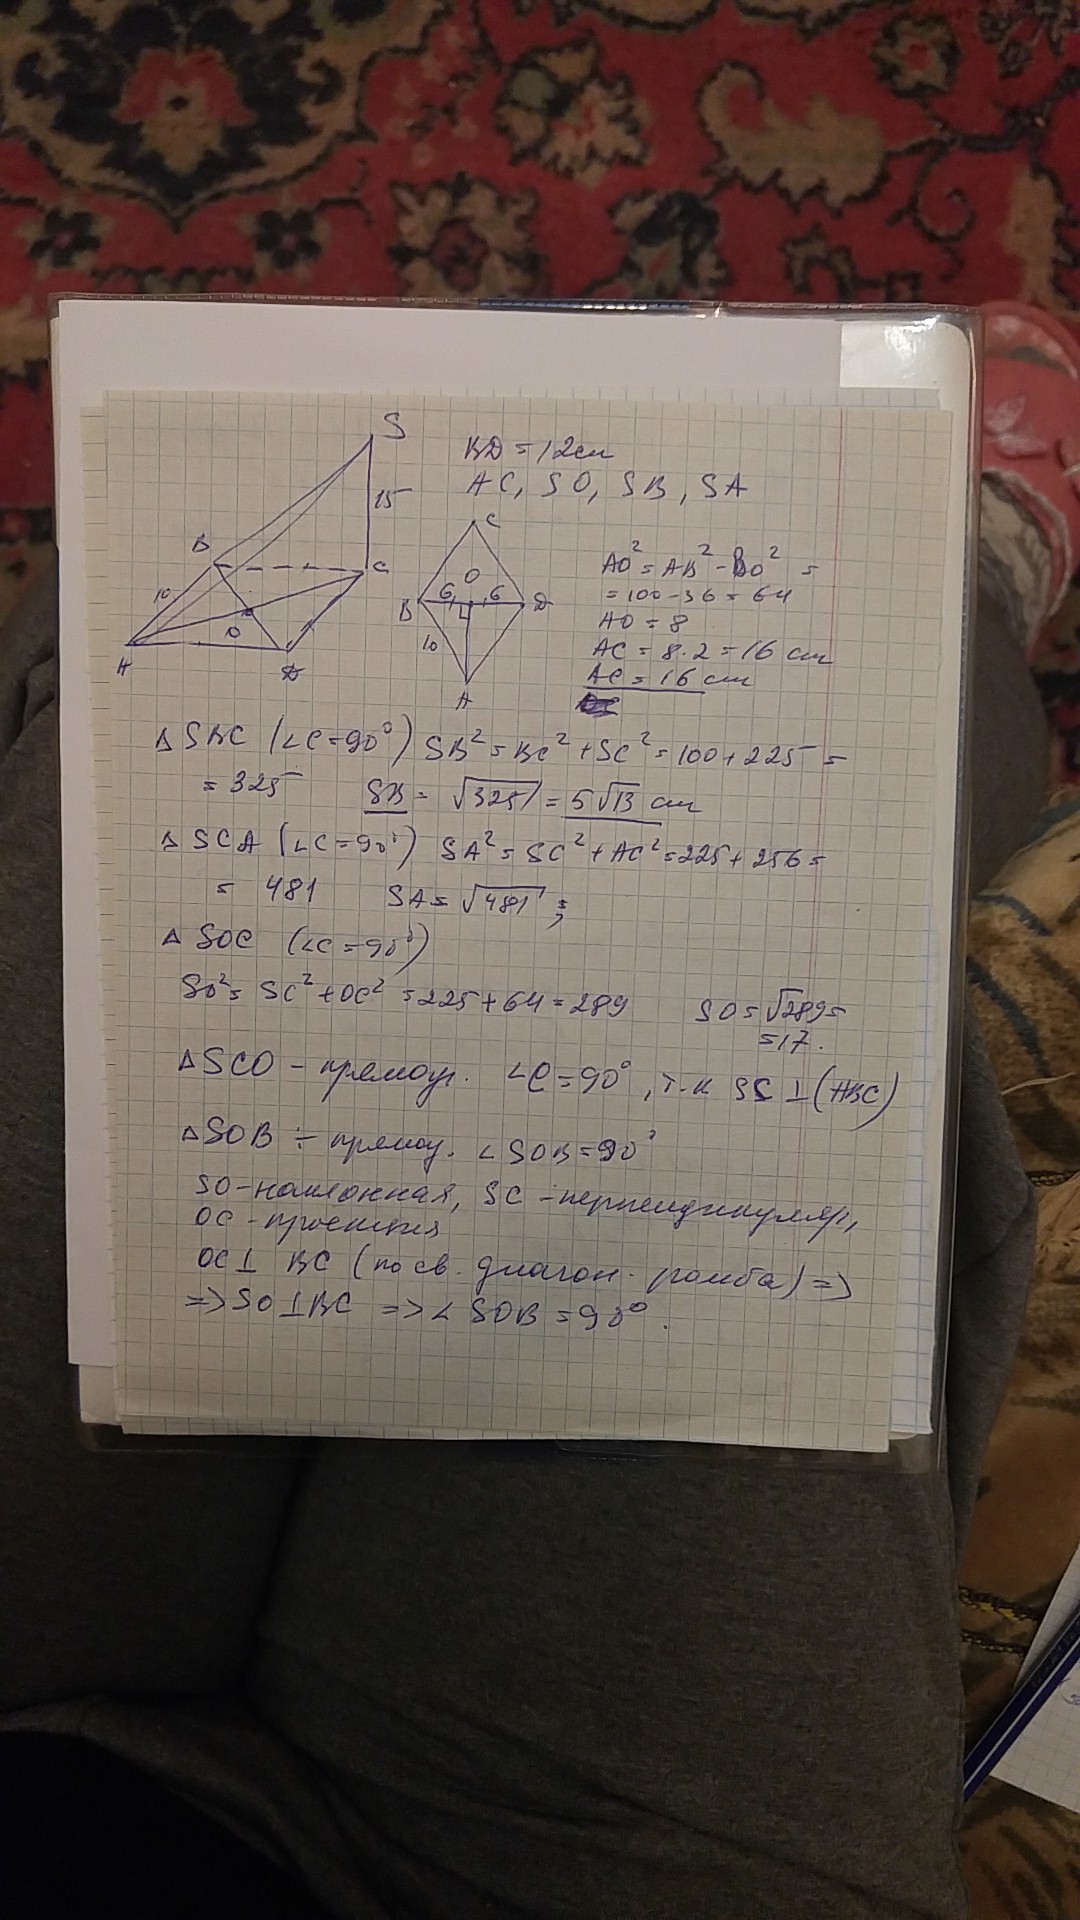 S
15
B
C
10
O
A
D
BD = 12 см
AC, SO, SB, SA
C
O
6 6
B D
10
A
AO² = AB² - BO² =
= 100 - 36 = 64
AO = 8
AC = 8·2 = 16 см
AC = 16 см
Δ SBC (∠C=90°) SB² = BC² + SC² = 100 + 225 =
= 325 SB = √325 = 5√13 см
Δ SCA (∠C=90°) SA² = SC² + AC² = 225 + 256 =
= 481 SA = √481;
Δ SOC (∠C=90°)
SO² = SC² + OC² = 225 + 64 = 289 SO = √289 =
= 17.
Δ SCO – прямоуг. ∠C = 90°, т.к SC ⊥ (ABC)
Δ SOB – прямоу. ∠ SOB = 90°
SO - наклонная, SC - перпендикуляр,
OC - проекция
OC ⊥ BC (по св. диагон. ромба) =>
=> SO ⊥ BC => ∠ SOB = 90°.